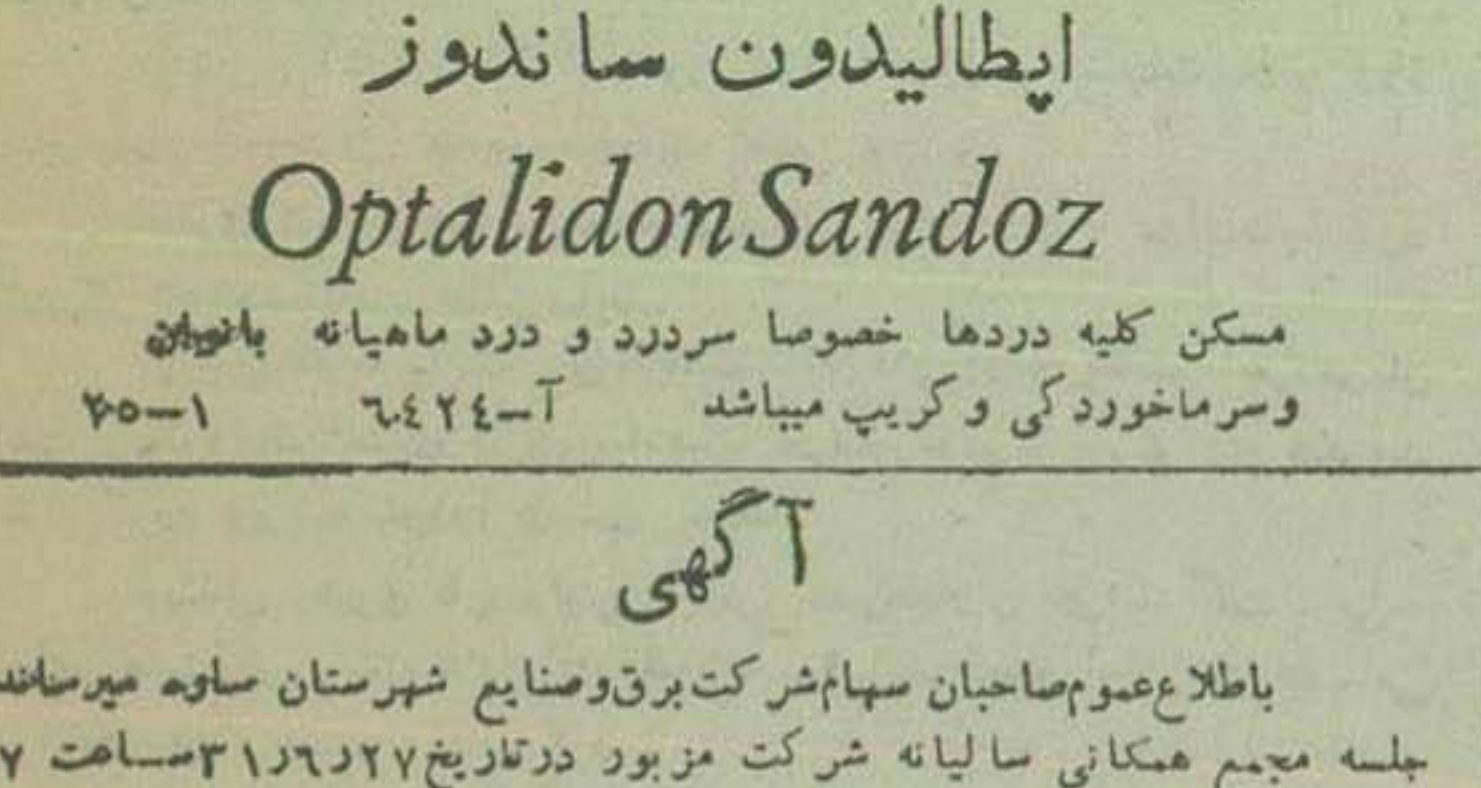 اپطالیدون ساندوز
Optalidon Sandoz
مسکن کلیه دردها خصوصا سردرد و درد ماهیانه بانوان
وسرماخوردگی و کریپ میباشد آ–٦٠٤٢٤ ١–٢٥
آگهی
باطلاع عموم صاحبان سهام شرکت برق و صنایع شهرستان ساوه میرساند
جلسه مجمع همگانی سالیانه شرکت مزبور در تاریخ ٢٧ر٦ر٣١ ساعت ٧